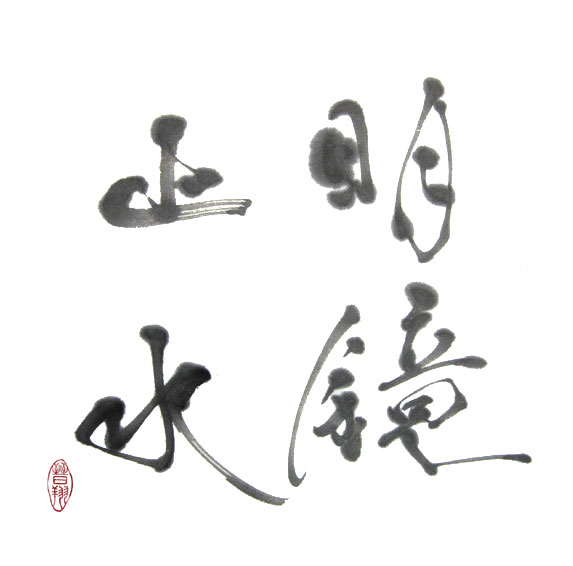 明鏡
止水